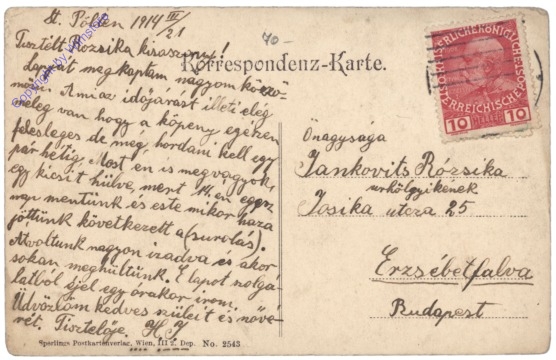 St. Pölten 1914 III/21
70-
Tisztelt Rozsika kisasszony!
Lapját megkaptam nagyon köszö-
nöm. Ami az időjárást illeti elég
meleg van hogy a köpeny egészen
felesleges de még hordani kell egy
pár hétig. Most én is meg vagyok
egy kicsit hülve, mert 14.én egész
nap mentünk és este mikor haza
jöttünk következett a (surolás).
Át voltunk nagyon izadva és akor
sokan meghültünk. E lapot szolgá-
latból éjel egy órakor irom.
Üdvözlöm kedves szüleit és növé-
rét. Tisztelője. H. J
Korrespondenz-Karte.
KAISERLICHE KÖNIGLICHE
ÖSTERREICHISCHE POST
10 HELLER 10
Önagysága
Jankovits Rózsika
urhölgyikenek
Josika utcza 25
Erzsébetfalva
Budapest
Sperlings Postkartenverlag, Wien, III 2. Dep. No. 2543
Copyright by